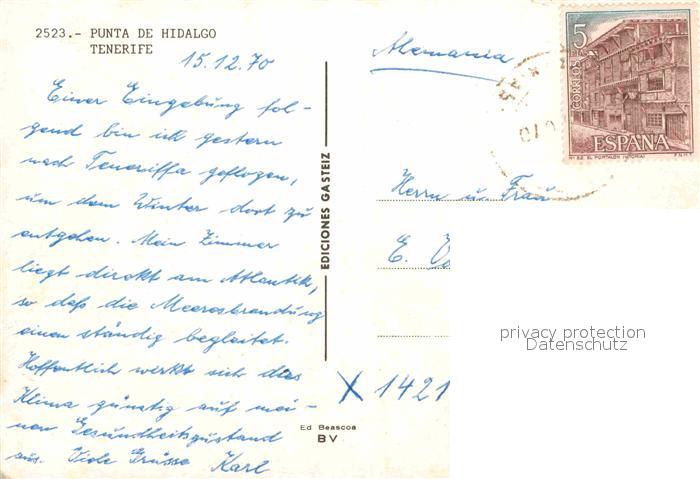 2523.- PUNTA DE HIDALGO
TENERIFE
15.12.70
Einer Eingebung fol-
gend bin ich gestern
nach Teneriffa geflogen,
um dem Winter dort zu
entgehen. Mein Zimmer
liegt direkt am Atlantik,
so daß die Meeresbrandung
einen ständig begleitet.
Hoffentlich wirkt sich das
Klima günstig auf mei-
nen Gesundheitszustand
aus. Viele Grüsse Karl
EDICIONES GASTEIZ
Ed Beascoa
BV
Alemania
5
CORREOS
ESPAÑA
Nº 52 EL PORTALON (VITORIA) F.N.M.T.
Herrn u. Frau
E.
X 1421
privacy protection
Datenschutz